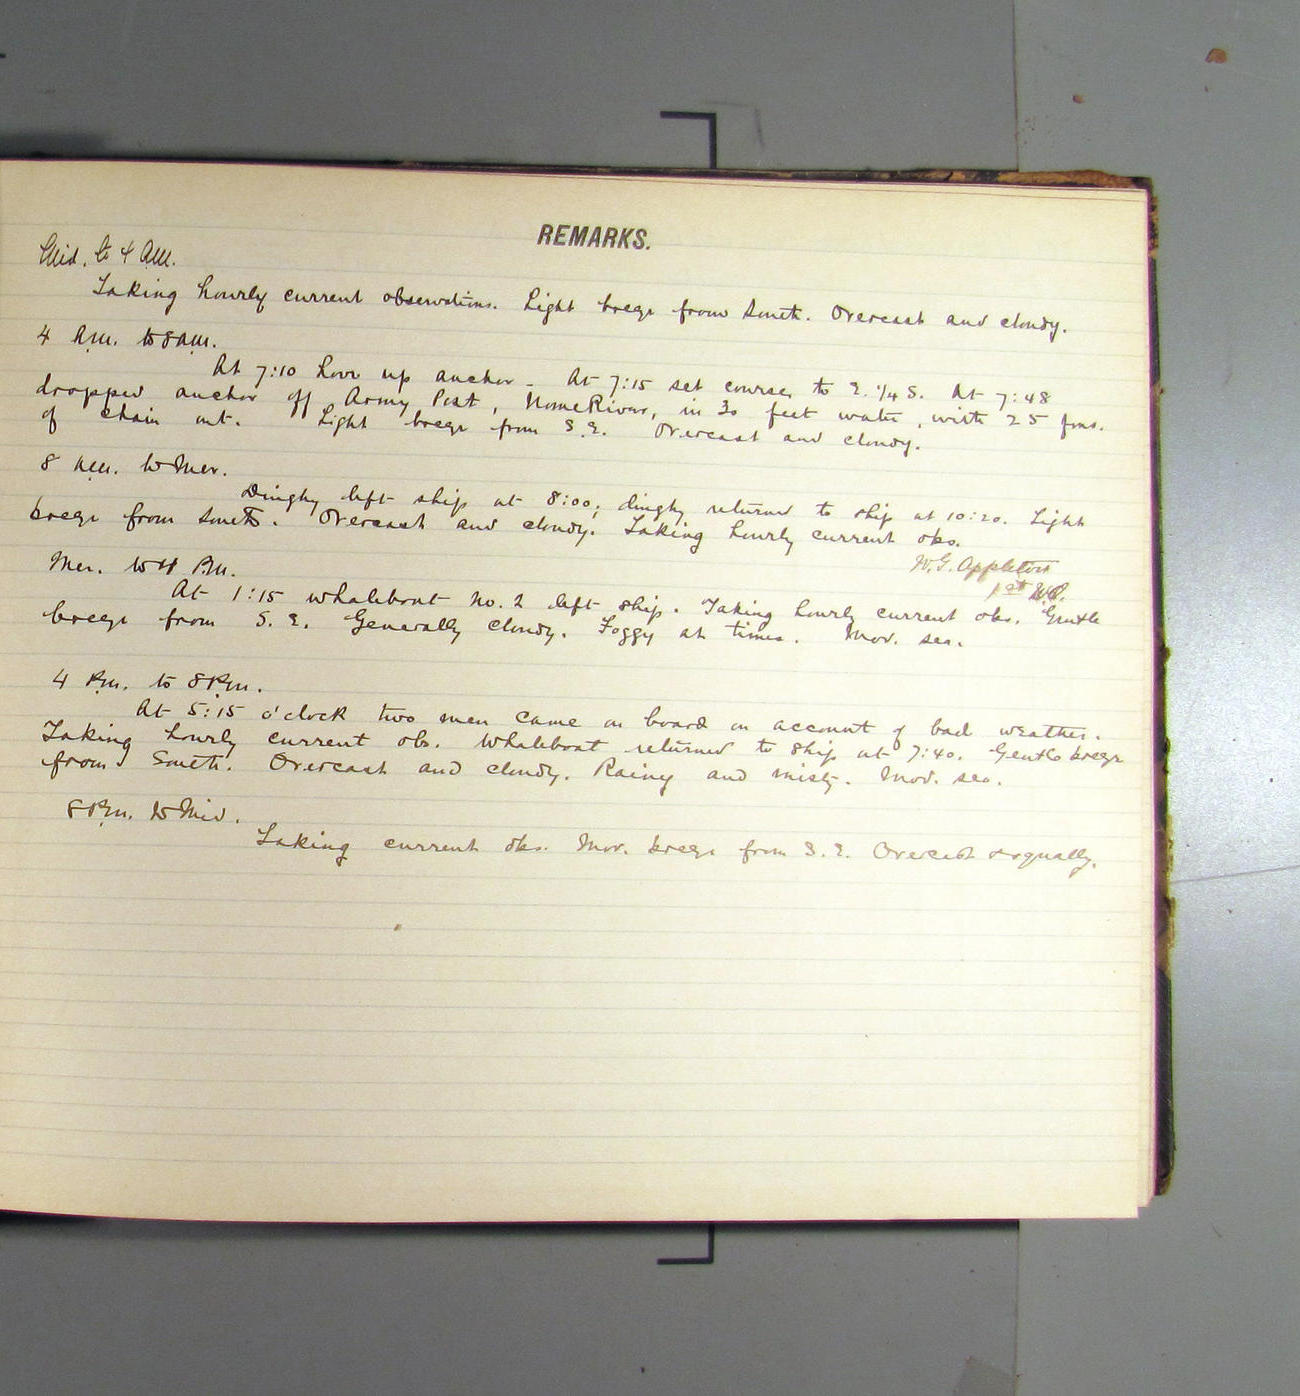 REMARKS.
Mid. to 4 A.M.
Taking hourly current observations. Light breeze from South. Overcast and cloudy.
4 A.M. to 8 A.M.
At 7:10 hove up anchor - At 7:15 set course to E. 1/4 S. At 7:48
dropped anchor off Army Post, Nome River, in 30 feet water, with 25 fms.
of chain out. Light breeze from S.E. Overcast and cloudy.
8 A.M. to Mer.
Dinghy left ship at 8:00; dinghy returned to ship at 10:20. Light
breeze from South. Overcast and cloudy. Taking hourly current obs.
W. G. Appleton
1st W.O.
Mer. to 4 P.M.
At 1:15 whaleboat No. 2 left ship. Taking hourly current obs. Gentle
breeze from S.E. Generally cloudy. Foggy at times. Mod. sea.
4 P.M. to 8 P.M.
At 5:15 o'clock two men came on board on account of bad weather.
Taking hourly current obs. Whaleboat returned to ship at 7:40. Gentle breeze
from South. Overcast and cloudy. Rainy and misty. Mod. sea.
8 P.M. to Mid.
Taking current obs. Mod. breeze from S.E. Overcast & squally.